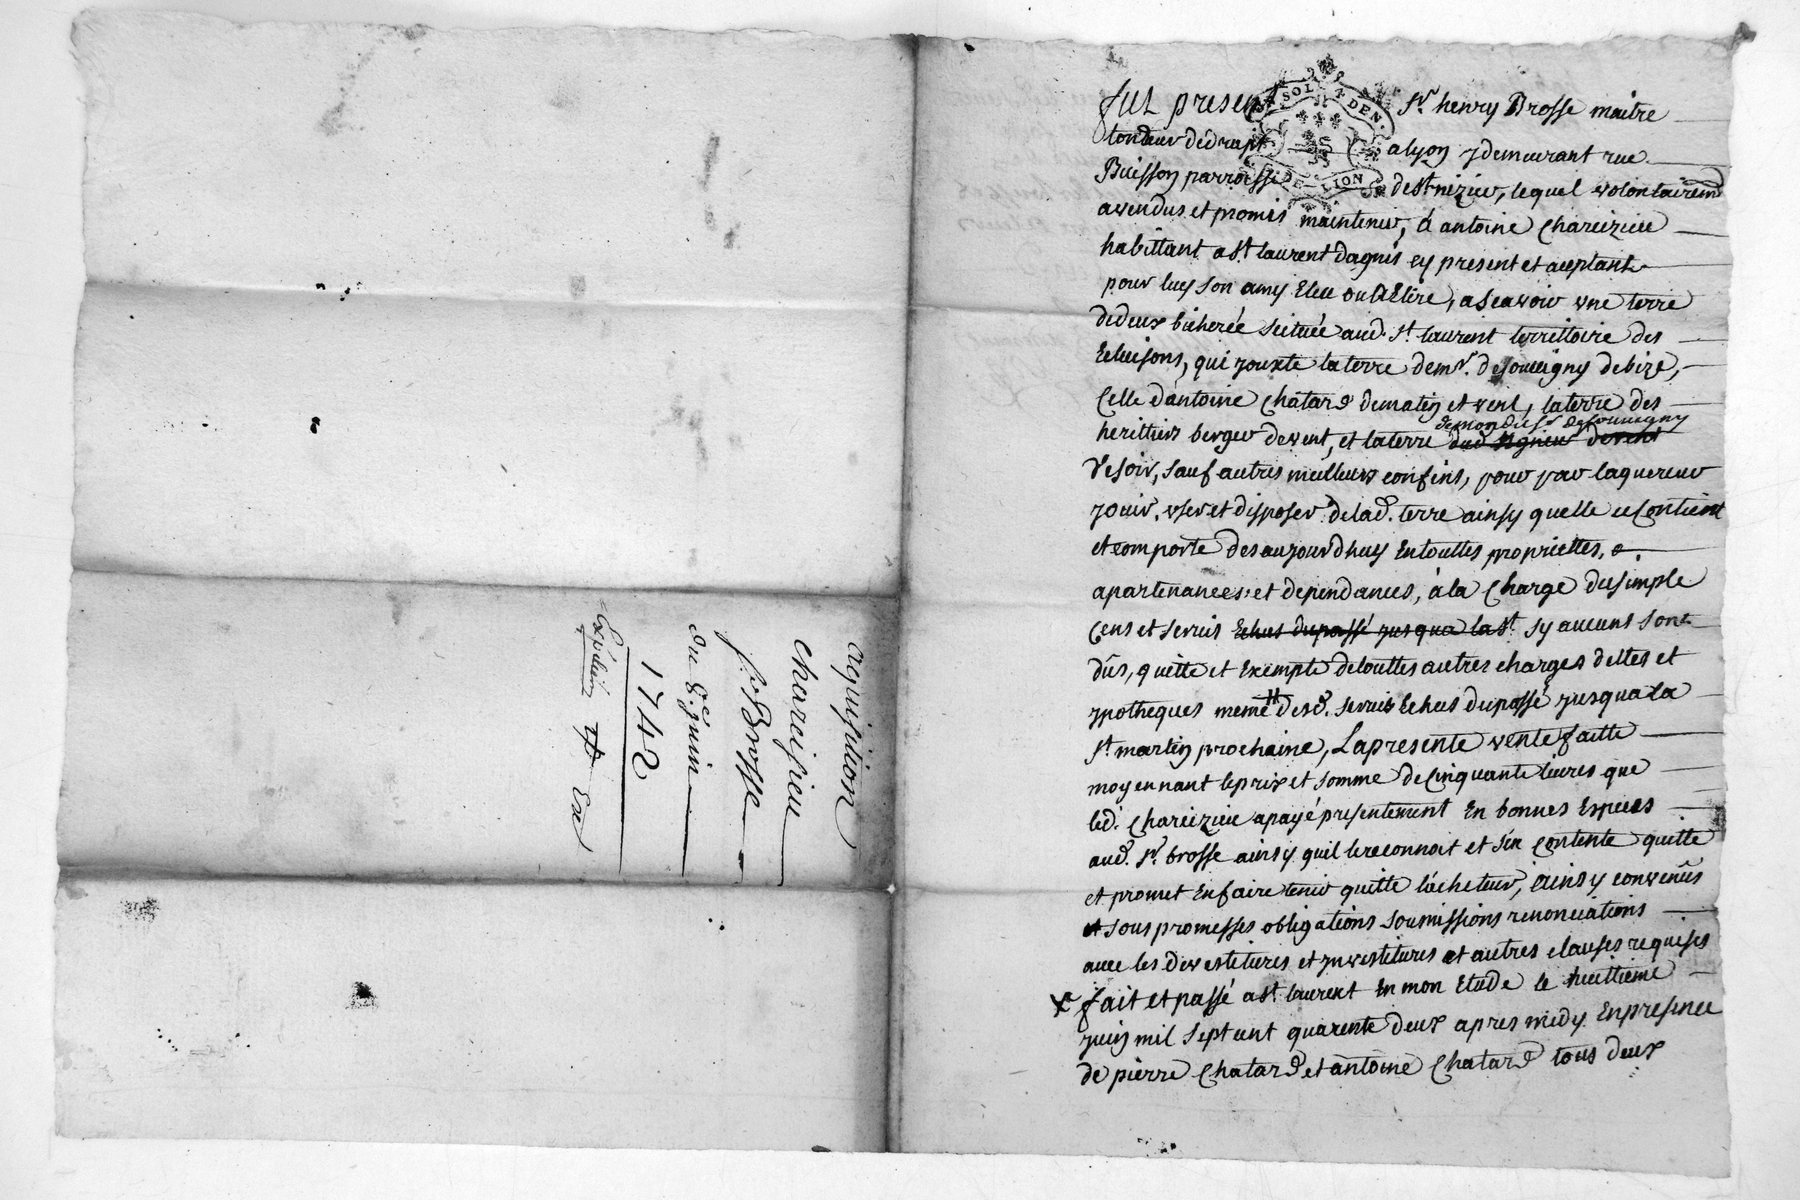 acquisition
chareisieu
sr Brosse
du 8e juin
1742
Expédiée
SOL 4 DEN.
DE LION
fut present sr. henry Brosse maitre
tondeur dedrapt alyon y demeurant rue
Buisson parroisse de st nizier, lequel volontairemt
avendus et promis maintenir, à antoine Chareizieu
habittant a st laurent dagnis ey present et aceptant
pour luy son amy Eleu ou A Elire, ascavoir une terre
dedeux bicherée scituée aud. st laurent territtoire des
Eclusons, qui jouxte laterre de mr. de souvigny debize,
Celle d'antoine Chatard dematin et vent, laterre des
demondit sr desouvigny
herittiers berger devent, et laterre
desoir, sauf autres meilleurs confins, pour par laquereur
jouir, user et disposer delad. terre ainsy quelle ce Contient
et comporte desaujourdhuy Entouttes propriettes,
apartenances, et dependances, à la Charge dusimple
Cens et servis Echus dupassé jusqua la st. sy aucuns sont
dûs, quitte et Exempte detouttes autres charges dettes et
ypotheques meme desd. servis Echus dupassé jusqua la
st. martin prochaine, La presente vente faitte
moyennant leprix et somme de Cinquante livres que
led. Chareizieu apayé presentement En bonnes Especes
aud. sr. brosse ainsy quil lereconnoit et s'en Contente quitte
et promet En faire tenir quitte l'acheteur, ainsy convenûs
et sous promesses obligations soumissions renonciations
avec les devestitures et ynvestitures et autres clauses requises
x fait et passé a st. laurent En mon Etude le huittieme
juin mil sept cent quarente deux apres midy. En presence
de pierre Chatard et antoine Chatard tous deux